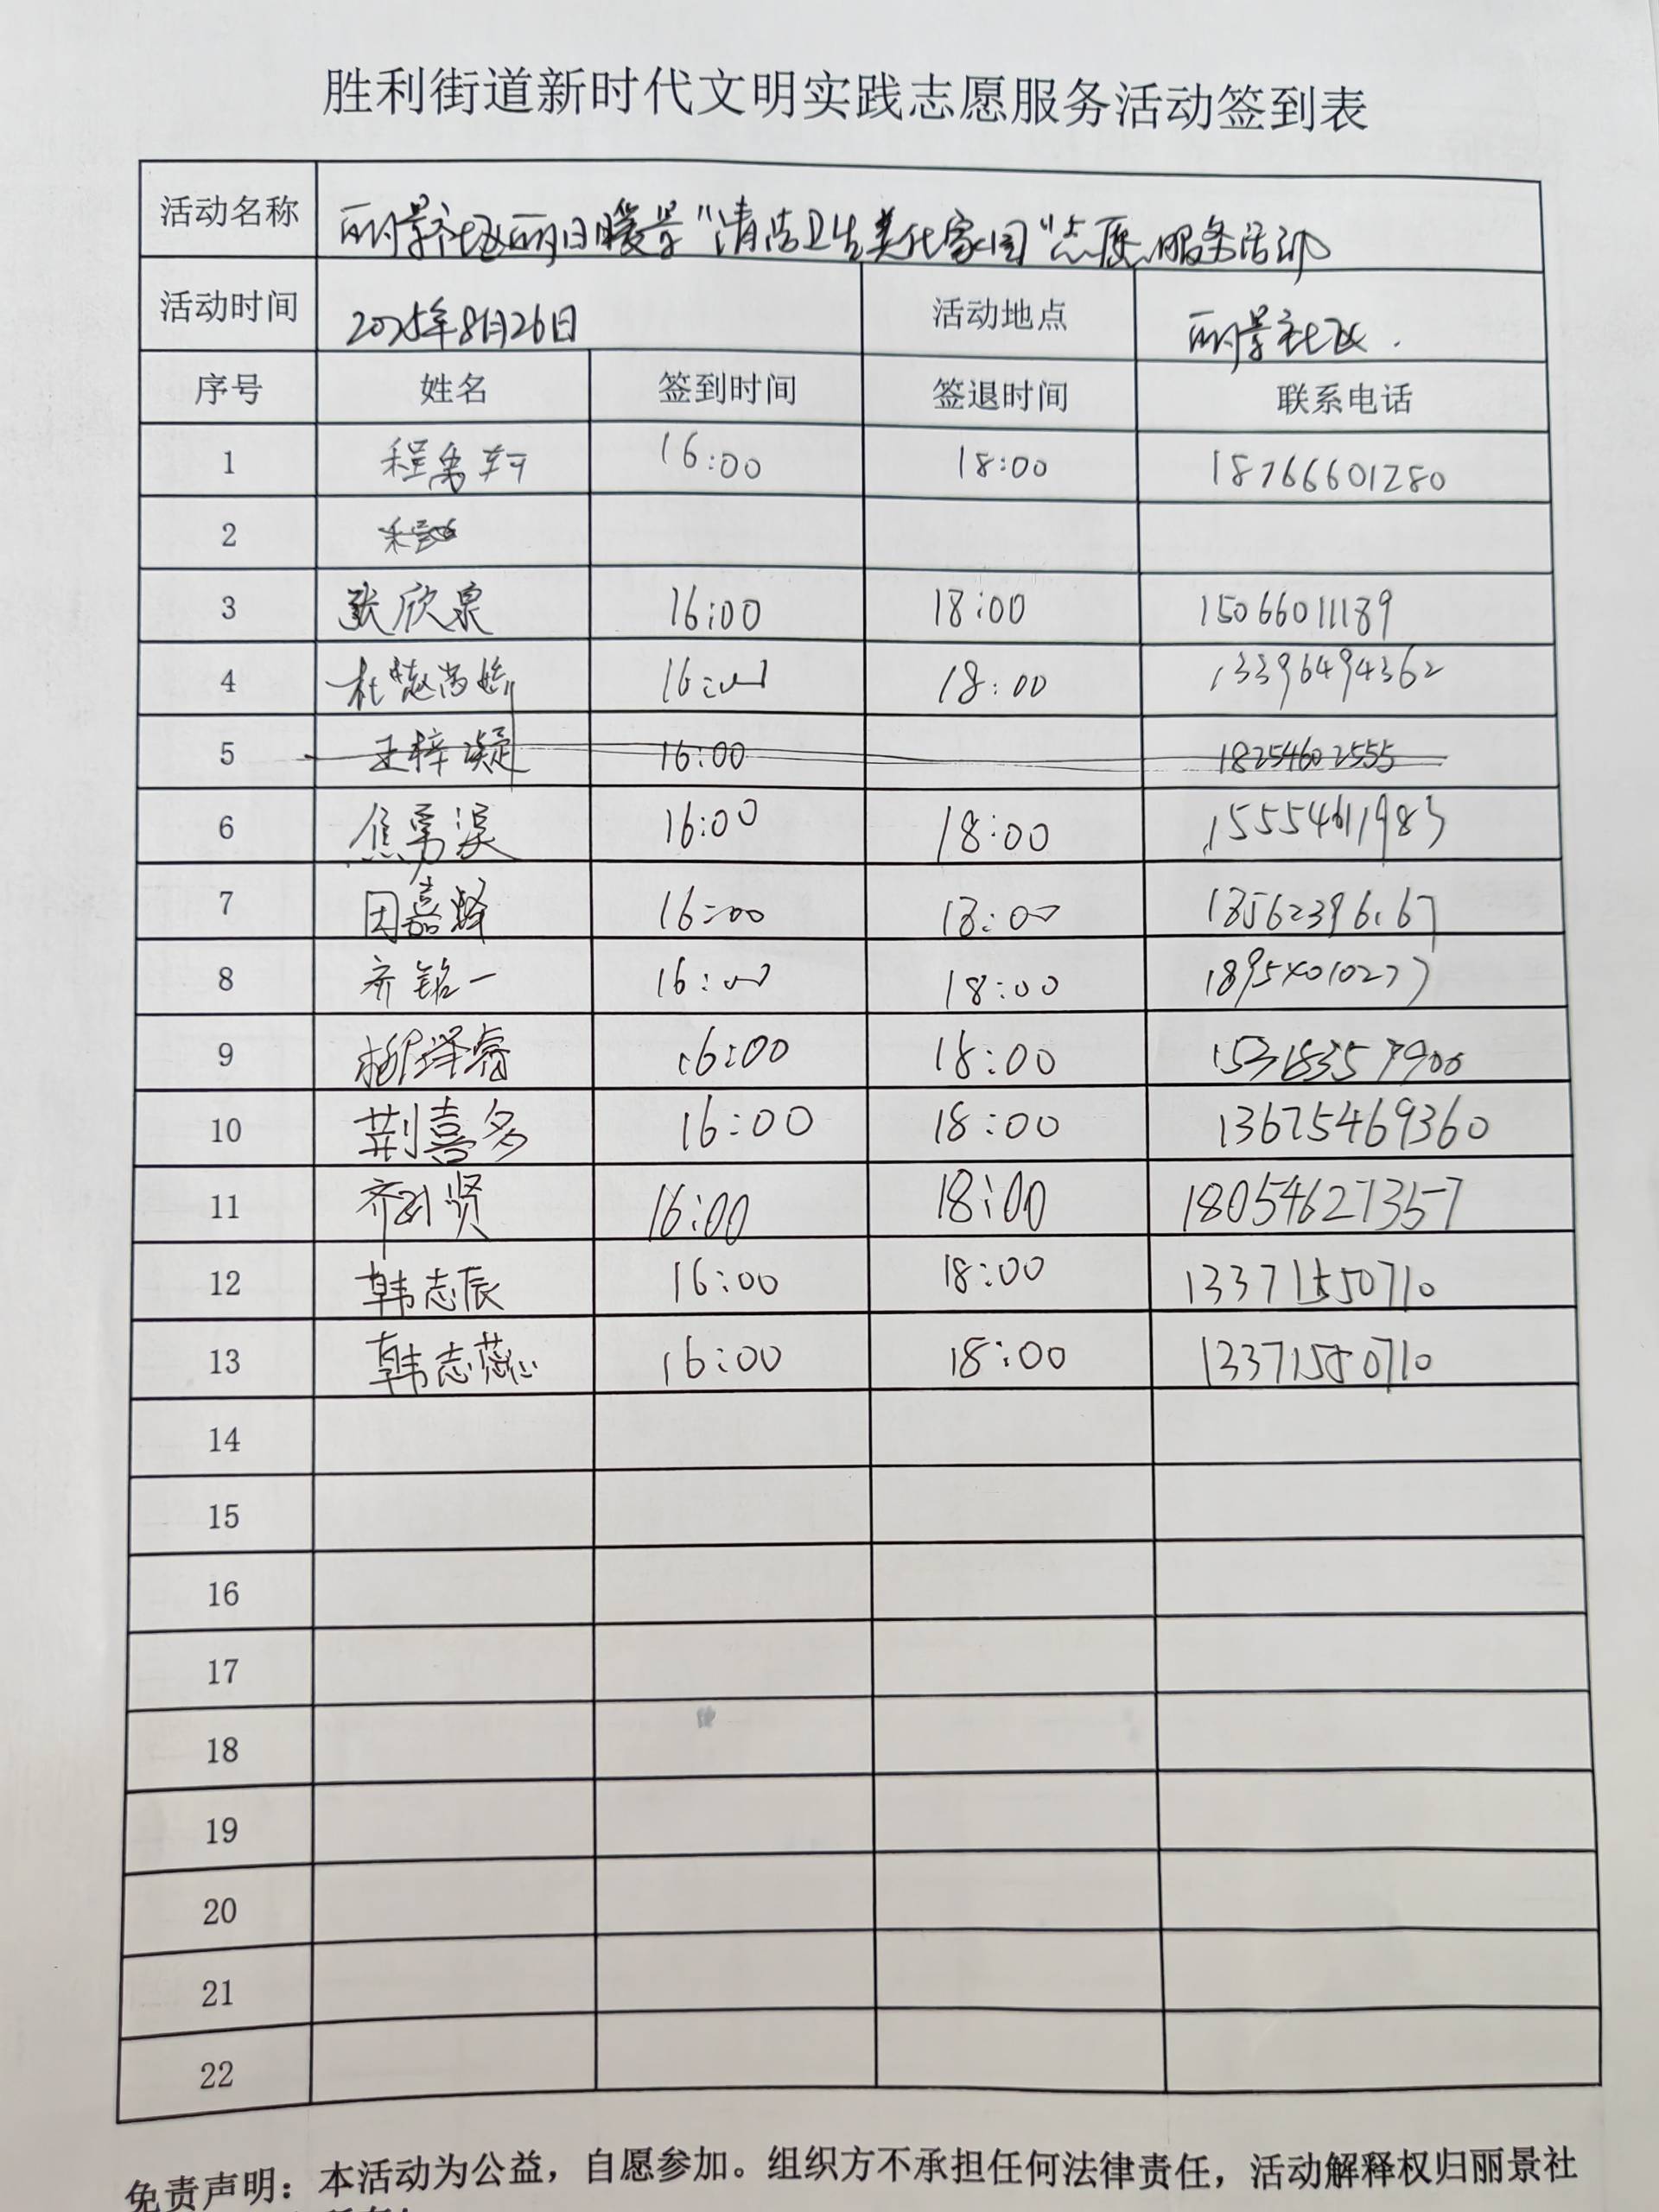 胜利街道新时代文明实践志愿服务活动签到表
活动名称 丽景社区丽日暖景“清洁卫生美化家园”志愿服务活动
活动时间 2025年8月26日 活动地点 丽景社区.
序号 姓名 签到时间 签退时间 联系电话
1 程禹轩 16:00 18:00 18766601280
2
3 张欣泉 16:00 18:00 15066011189
4 16:00 18:00 13396494362
5 王梓凝 16:00 18254602555
6 16:00 18:00 15554611983
7 16:00 18:00
8 齐铭一 16:00 18:00
9 柳泽睿 16:00 18:00
10 荆喜多 16:00 18:00 13675469360
11 16:00 18:00 18054627357
12 韩志辰 16:00 18:00 13371550710
13 韩志蕊 16:00 18:00 13371550710
14
15
16
17
18
19
20
21
22
免责声明：本活动为公益，自愿参加。组织方不承担任何法律责任，活动解释权归丽景社